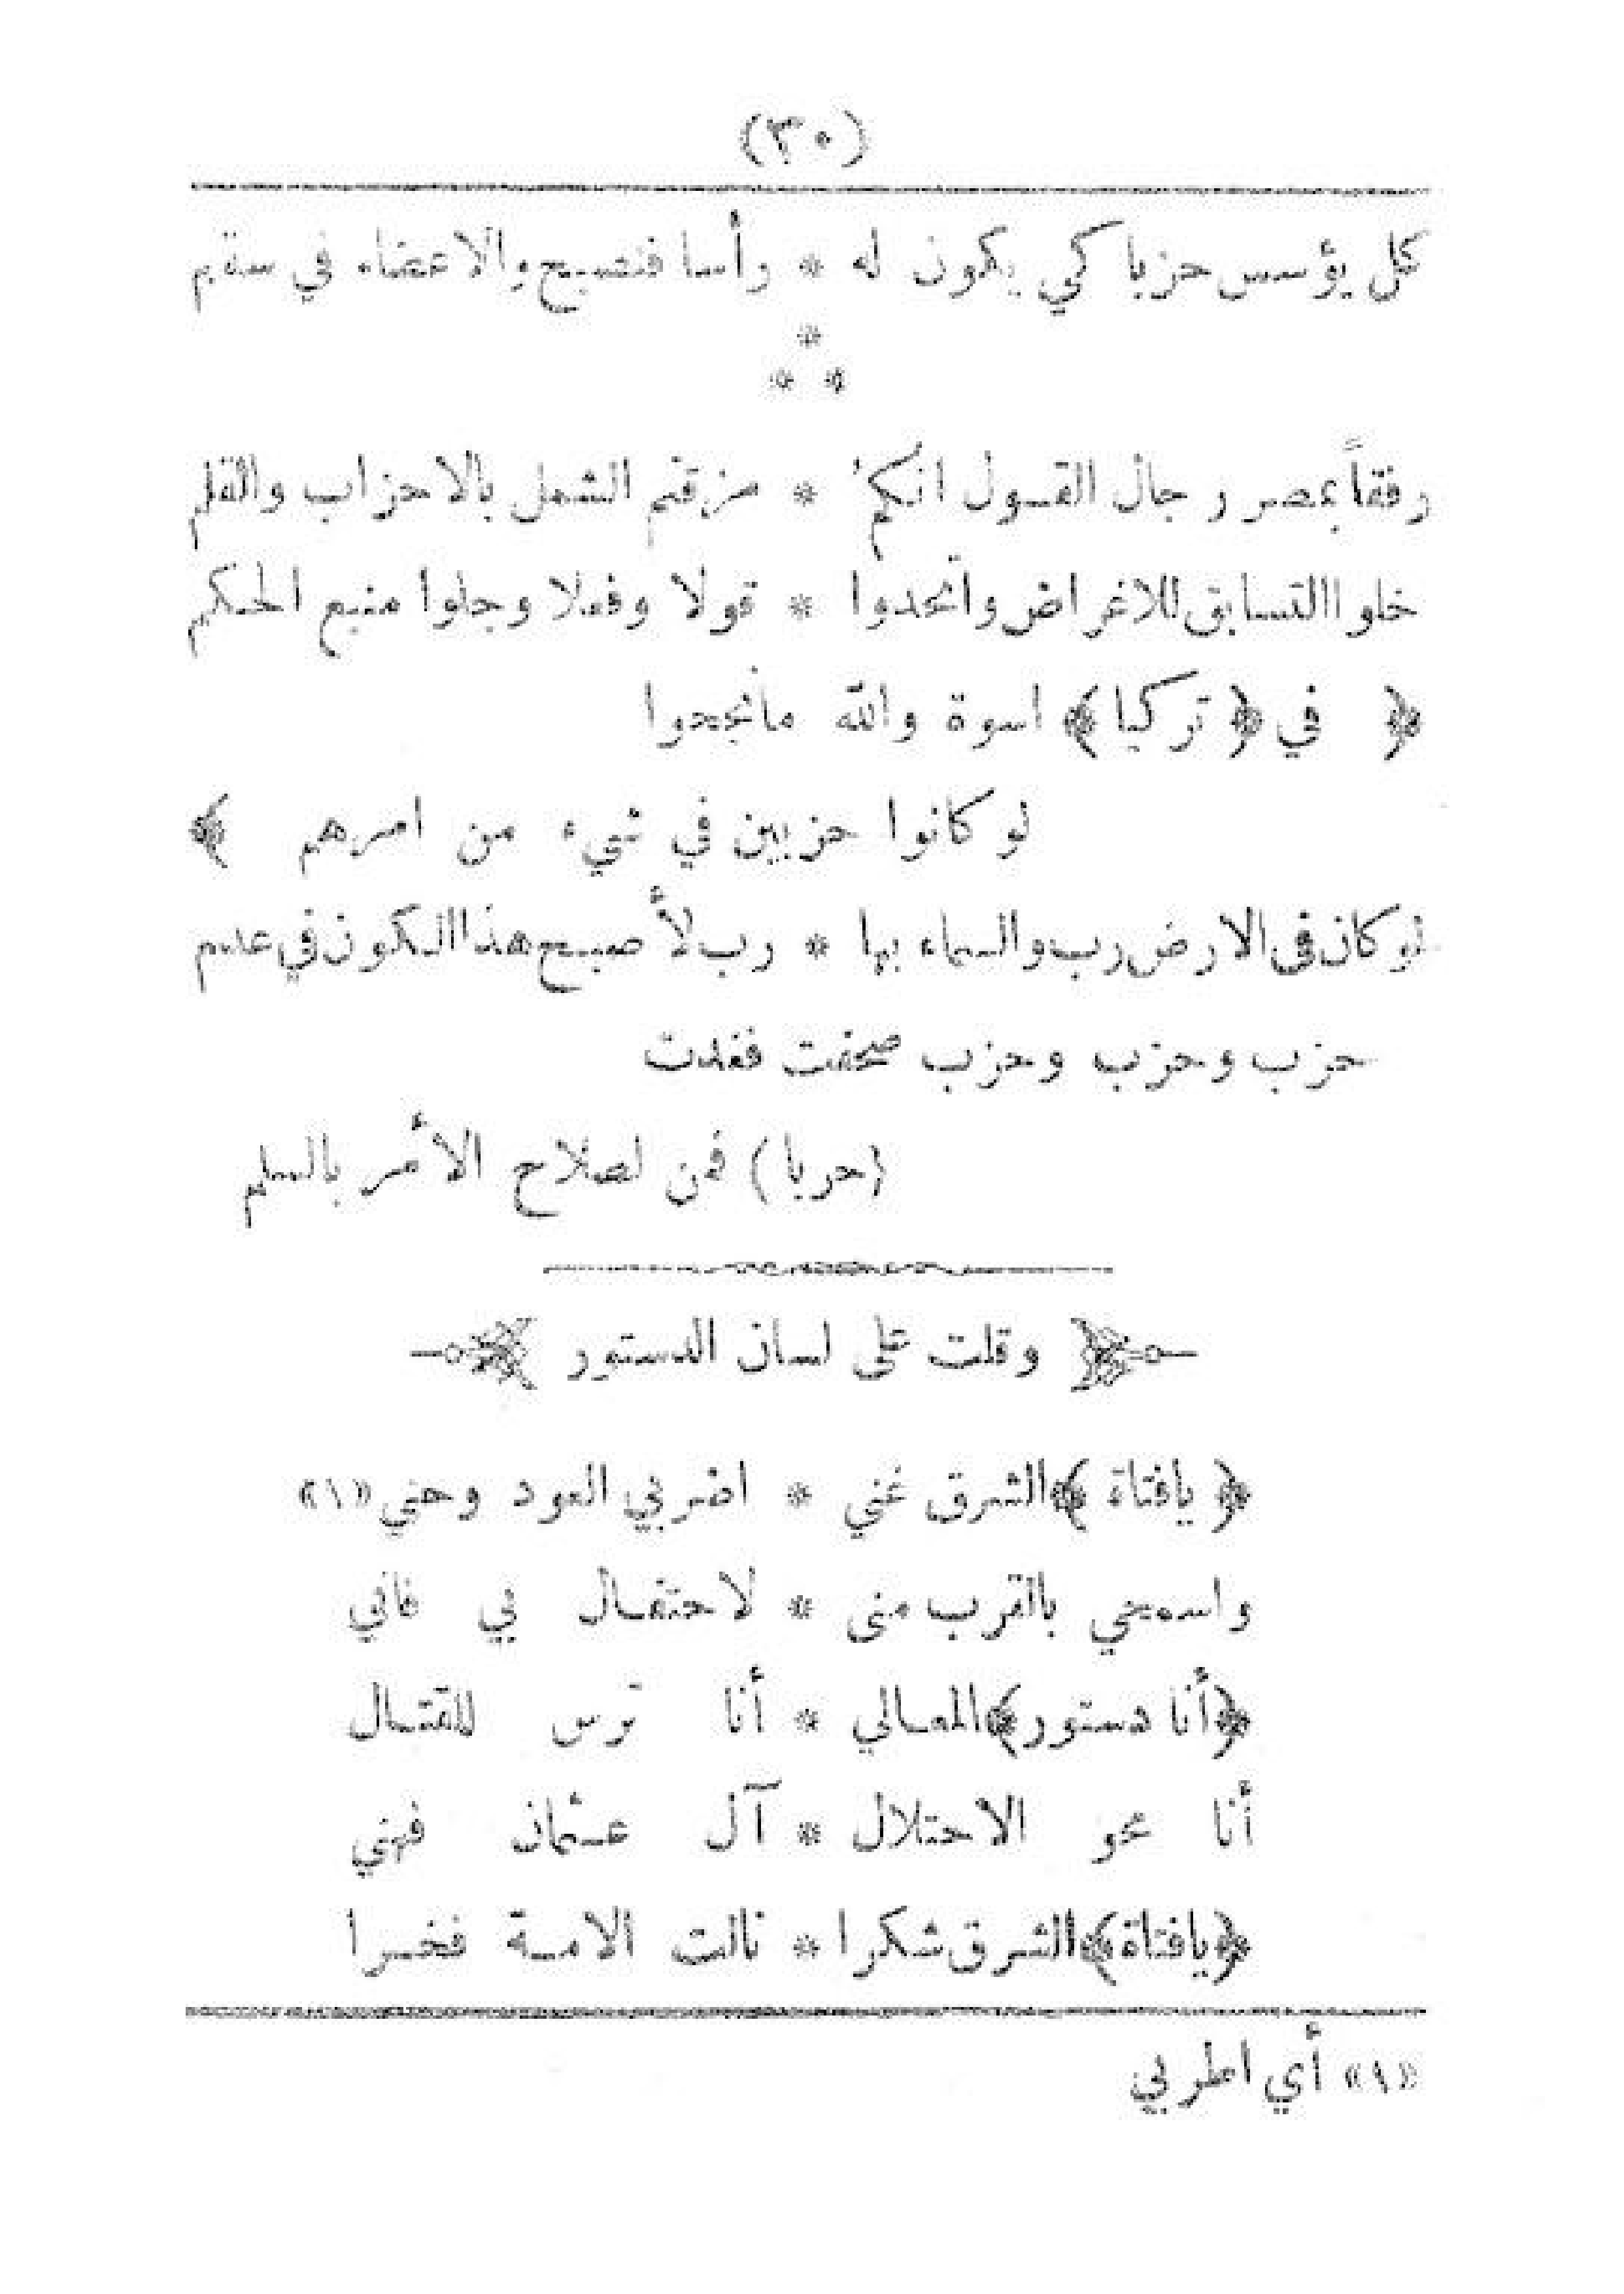 (٣٥)
كل يؤسس حزبا كي يكون له * رأسا فتصبح والاعضاء في سقم
*
* *
رفقاً بمصر رجال القول انكمُ * مزقتم الشمل بالاحزاب والقلم
خلوا التسابق للاغراض واتحدوا * قولا وفعلا وجلوا منبع الحكم
﴿ في ﴿ تركيا ﴾ اسوة والله مانجحوا
لو كانوا حزبين في شيء من امرهم ﴾
لو كان فى الارض رب والسماء بها * رب لأصبح هذا الكون في عدم
حزب وحزب وحزب صحفت فغدت
(حربا) فمن لصلاح الأمر بالسلم
﴿ وقلت على لسان الدستور ﴾
﴿ يافتاة ﴾ الشرق غني * اضربي العود وهني «١»
واسمحي بالقرب منى * لاحتفال بي فاني
﴿أنا دستور﴾ المعالي * أنا ترس للقتال
أنا محو الاحتلال * آل عثمان فهني
﴿يافتاة﴾ الشرق شكرا * نالت الامة فخرا
«١» أي اطربي